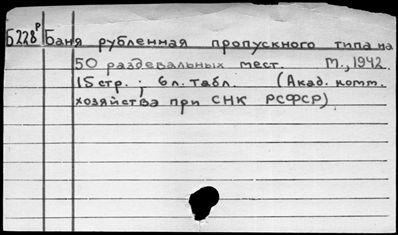 Б228Р Баня рубленная пропускного типа на
50 раздевальных мест. М., 1942.
15 стр.; 6 л. табл. (Акад. комм.
хозяйства при СНК РСФСР)